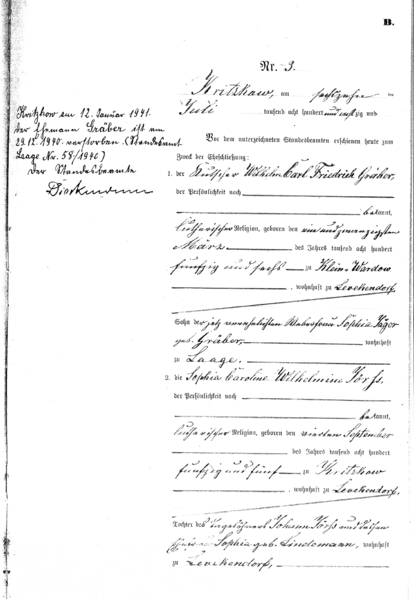 B.
Nr. 3.
Kritzkow, am sechszehn ten
Juli tausend acht hundert und
Kritzkow am 12. Januar 1941.
Der Ehemann Gräber ist am
29.12.1940 verstorben (Standesamt
Laage Nr. 58/1940)
Der Standesbeamte
Vor dem unterzeichneten Standesbeamten erschienen heute zum
Zweck der Eheschließung:
1. der Kutscher Wilhelm Carl Friedrich Gräber,
der Persönlichkeit nach
bekannt,
lutherischer Religion, geboren den ein und zwanzigsten
März des Jahres tausend acht hundert
fünfzig und sechs zu Klein-Wardow
, wohnhaft zu Levkendorf,
Sohn der jetzt verehelichten Sophia Jäger
geb. Gräber, wohnhaft
zu Laage.
2. die Sophia Caroline Wilhelmine Jörß.
der Persönlichkeit nach
bekannt,
lutherischer Religion, geboren den vierten September
des Jahres tausend acht hundert
fünfzig und fünf zu Kritzkow
, wohnhaft zu Levkendorf,
Tochter des Tagelöhners Johann Jörß und dessen
Sophia geb. Lindemann, wohnhaft
zu Levkendorf,